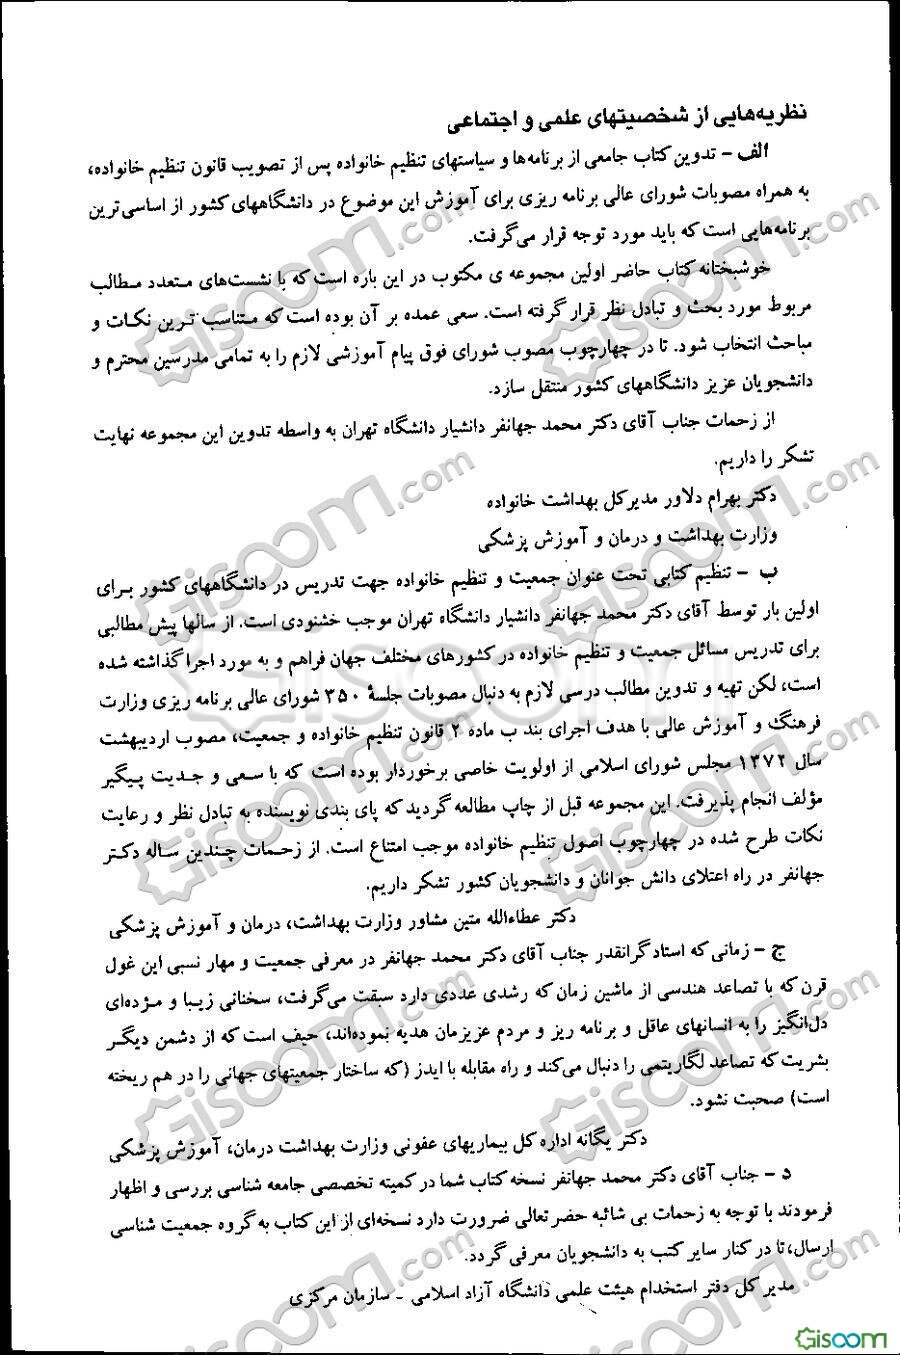 نظریه‌هایی از شخصیتهای علمی و اجتماعی
الف - تدوین کتاب جامعی از برنامه‌ها و سیاستهای تنظیم خانواده پس از تصویب قانون تنظیم خانواده،
به همراه مصوبات شورای عالی برنامه ریزی برای آموزش این موضوع در دانشگاههای کشور از اساسی‌ترین
برنامه‌هایی است که باید مورد توجه قرار می‌گرفت.
خوشبختانه کتاب حاضر اولین مجموعه ی مکتوب در این باره است که با نشست‌های متعدد مطالب
مربوط مورد بحث و تبادل نظر قرار گرفته است. سعی عمده بر آن بوده است که متناسب ترین نکات و
مباحث انتخاب شود. تا در چهارچوب مصوب شورای فوق پیام آموزشی لازم را به تمامی مدرسین محترم و
دانشجویان عزیز دانشگاههای کشور منتقل سازد.
از زحمات جناب آقای دکتر محمد جهانفر دانشیار دانشگاه تهران به واسطه تدوین این مجموعه نهایت
تشکر را داریم.
دکتر بهرام دلاور مدیرکل بهداشت خانواده
وزارت بهداشت و درمان و آموزش پزشکی
ب - تنظیم کتابی تحت عنوان جمعیت و تنظیم خانواده جهت تدریس در دانشگاههای کشور برای
اولین بار توسط آقای دکتر محمد جهانفر دانشیار دانشگاه تهران موجب خشنودی است. از سالها پیش مطالبی
برای تدریس مسائل جمعیت و تنظیم خانواده در کشورهای مختلف جهان فراهم و به مورد اجرا گذاشته شده
است، لکن تهیه و تدوین مطالب درسی لازم به دنبال مصوبات جلسهٔ ۳۵۰ شورای عالی برنامه ریزی وزارت
فرهنگ و آموزش عالی با هدف اجرای بند ب ماده ۲ قانون تنظیم خانواده و جمعیت، مصوب اردیبهشت
سال ۱۳۷۲ مجلس شورای اسلامی از اولویت خاصی برخوردار بوده است که با سعی و جدیت پیگیر
مؤلف انجام پذیرفت. این مجموعه قبل از چاپ مطالعه گردید که پای بندی نویسنده به تبادل نظر و رعایت
نکات طرح شده در چهارچوب اصول تنظیم خانواده موجب امتناع است. از زحمات چندین ساله دکتر
جهانفر در راه اعتلای دانش جوانان و دانشجویان کشور تشکر داریم.
دکتر عطاءالله متین مشاور وزارت بهداشت، درمان و آموزش پزشکی
ج - زمانی که استاد گرانقدر جناب آقای دکتر محمد جهانفر در معرفی جمعیت و مهار نسبی این غول
قرن که با تصاعد هندسی از ماشین زمان که رشدی عددی دارد سبقت می‌گرفت، سخنانی زیبا و مژده‌ای
دل‌انگیز را به انسانهای عاقل و برنامه ریز و مردم عزیزمان هدیه نموده‌اند، حیف است که از دشمن دیگر
بشریت که تصاعد لگاریتمی را دنبال می‌کند و راه مقابله با ایدز (که ساختار جمعیتهای جهانی را در هم ریخته
است) صحبت نشود.
دکتر یگانه اداره کل بیماریهای عفونی وزارت بهداشت درمان، آموزش پزشکی
د - جناب آقای دکتر محمد جهانفر نسخه کتاب شما در کمیته تخصصی جامعه شناسی بررسی و اظهار
فرمودند با توجه به زحمات بی شائبه حضرتعالی ضرورت دارد نسخه‌ای از این کتاب به گروه جمعیت شناسی
ارسال، تا در کنار سایر کتب به دانشجویان معرفی گردد.
مدیر کل دفتر استخدام هیئت علمی دانشگاه آزاد اسلامی - سازمان مرکزی
Gisoom.com
Gisoom